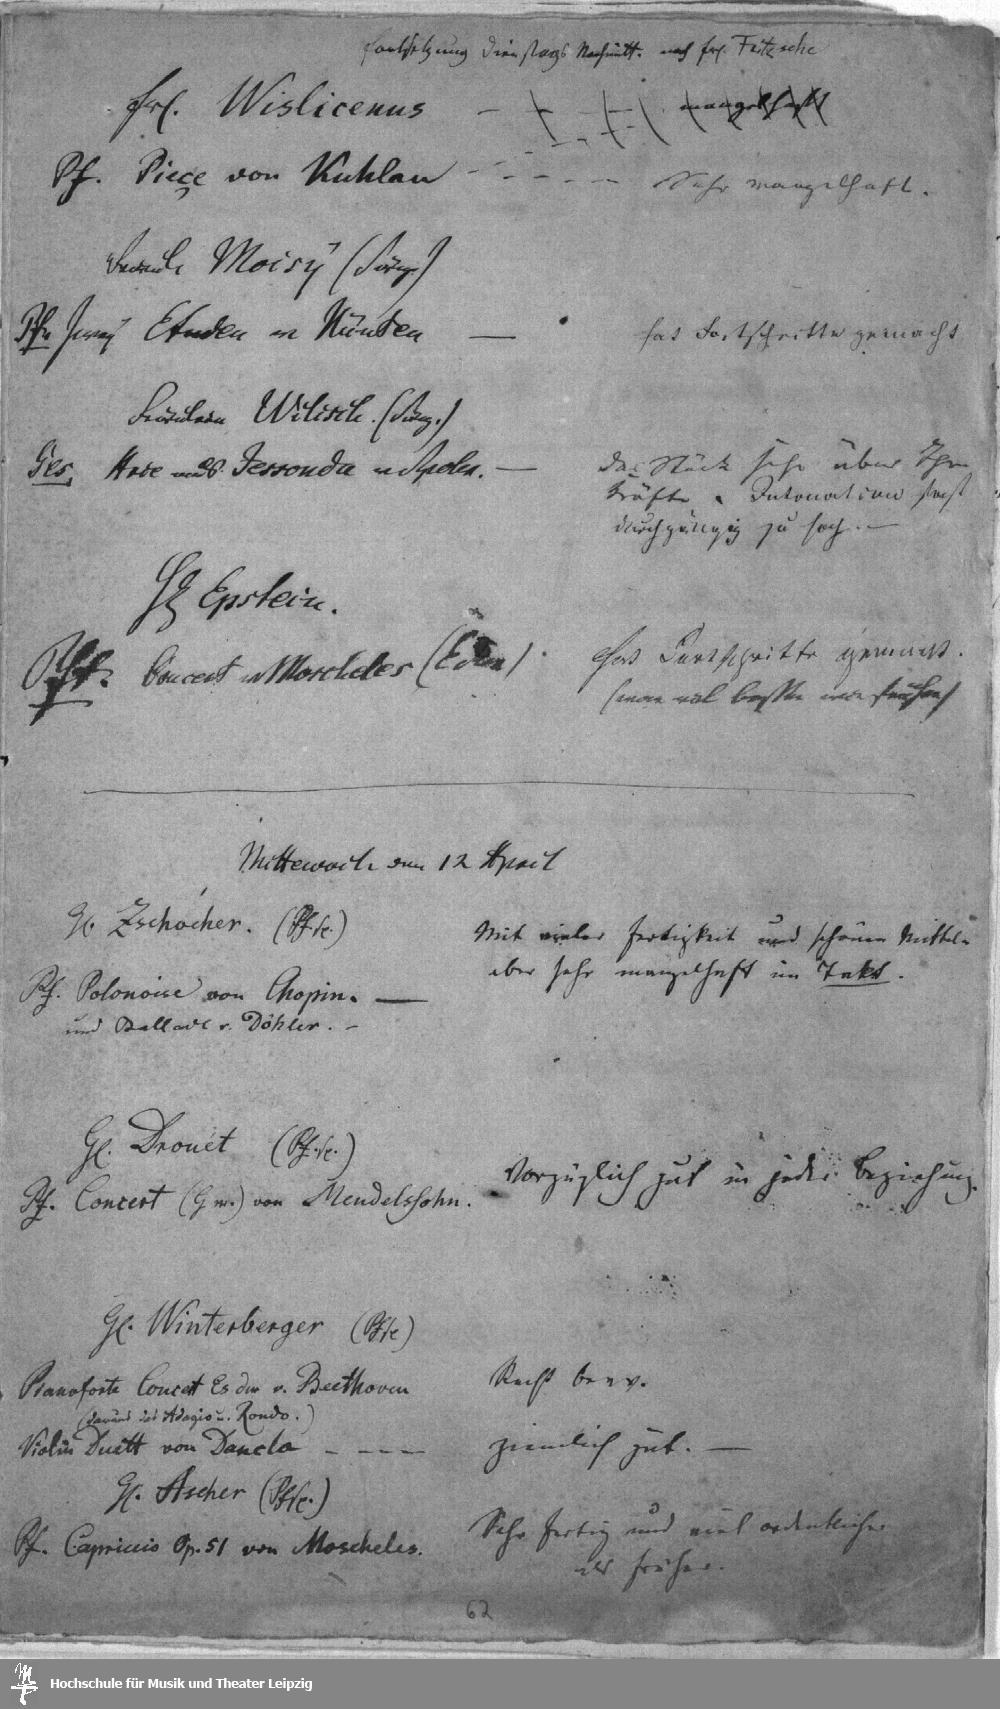 Fortsetzung Dienstags Nachmitt. nach Frl. Fritzsche
Frl. Wislicenus — mangelhaft
Pf. Piece von Kuhlau - - - - - Sehr mangelhaft.
Moisÿ
Etuden v Hünten — hat Fortschritte gemacht
Fräulein Wilisch.
Ges. Arie aus Jessonda v Spohr. — Das Stück sehr über Ihre
Kräfte. Intonation fast
durchgängig zu hoch. —
H Epstein.
Pft. Concert v Moscheles Hat Fortschritte gemacht.
Mittewoch den 12 April
H. Zschocher. (Pfte.)
Mit vieler Fertigkeit und schönen Mitteln
Pf. Polonoise von Chopin. — aber sehr mangelhaft im Takt.
und Ballade v. Döhler. -
H. Drouet (Pfte.)
Pf. Concert (G m.) von Mendelssohn. Vorzüglich gut in jeder Beziehung.
H. Winterberger (Pfte)
Pianoforte Concert Es dur v. Beethoven Recht brav.
(daraus das Adagio u. Rondo.)
Violin Duett von Dancla - - - - ziemlich gut. —
H. Ascher (Pfte.)
Pf. Capriccio Op. 51 von Moscheles. Sehr fertig und viel ordentlicher
als früher.
62
Hochschule für Musik und Theater Leipzig